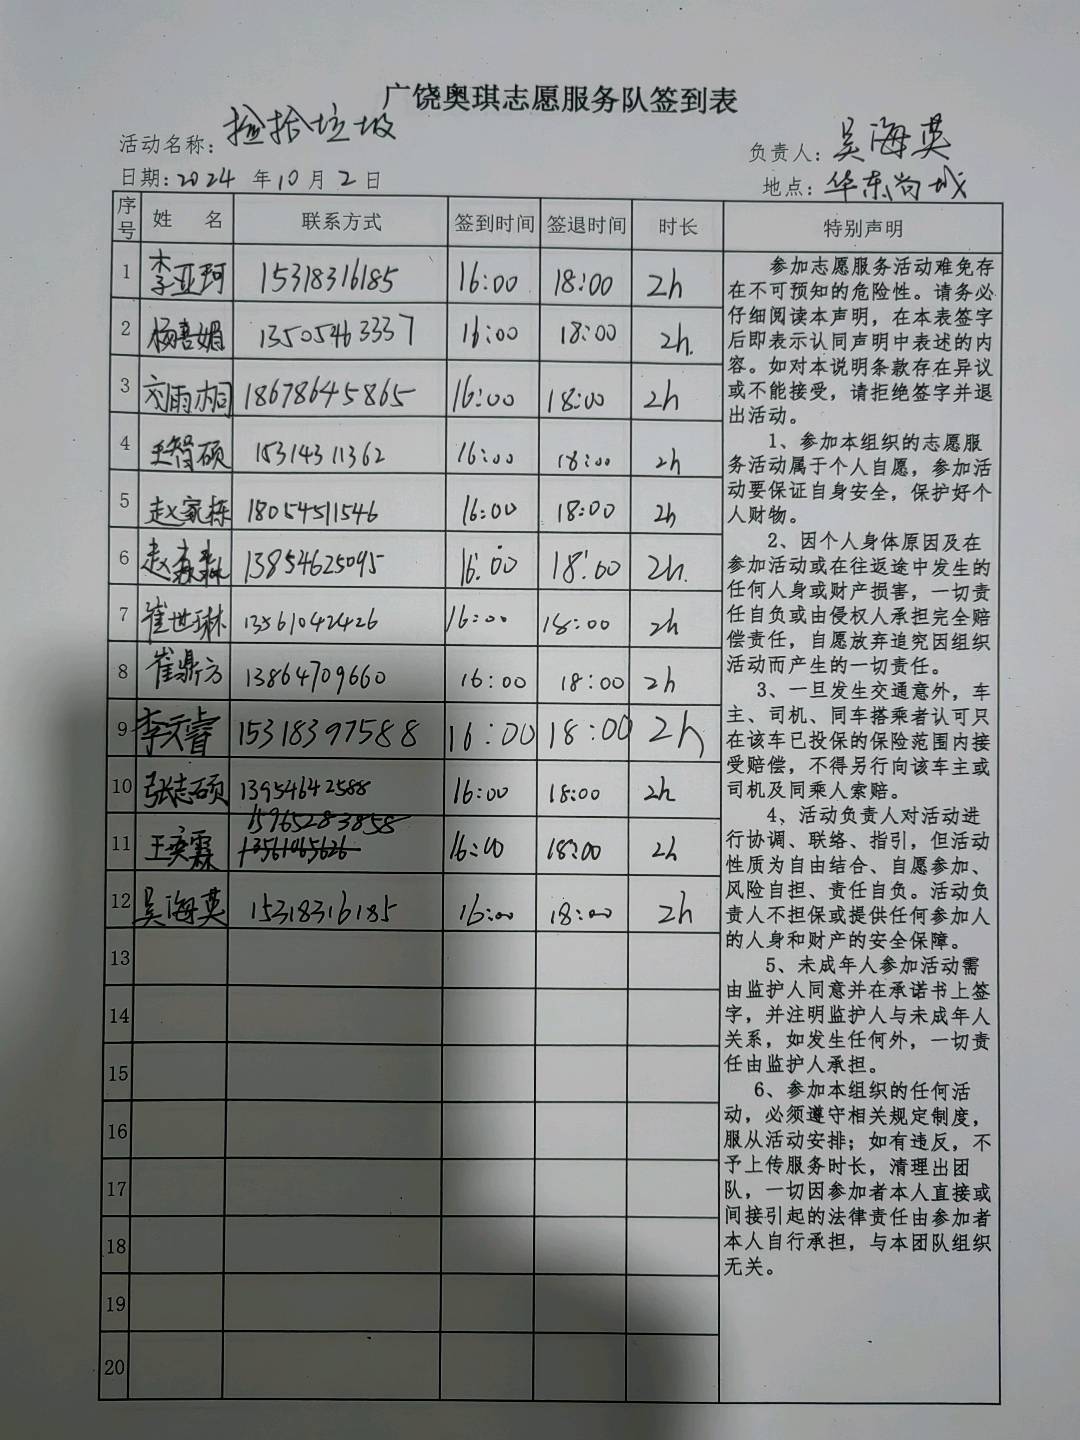 广饶奥琪志愿服务队签到表
活动名称：捡拾垃圾
负责人：吴海英
日期：2024 年 10 月 2 日
地点：华东尚城
序号 姓 名 联系方式 签到时间 签退时间 时长 特别声明
1 李亚珂 15318316185 16:00 18:00 2h
2 杨喜媚 13505463337 16:00 18:00 2h.
3 18678645865 16:00 18:00 2h
4 王智硕 15314311362 16:00 18:00 2h
5 赵家栋 18054511546 16:00 18:00 2h
6 赵森淼 13854625095 16:00 18:00 2h.
7 崔世琳 13561042426 16:00 18:00 2h
8 崔鼎方 13864709660 16:00 18:00 2h
9 李文睿 15318397588 16:00 18:00 2h
10 张志硕 13954642588 16:00 18:00 2h
15965283858
11 王奕霖 13561065626 16:00 18:00 2h
12 吴海英 15318316185 16:00 18:00 2h
13
14
15
16
17
18
19
20
参加志愿服务活动难免存
在不可预知的危险性。请务必
仔细阅读本声明，在本表签字
后即表示认同声明中表述的内
容。如对本说明条款存在异议
或不能接受，请拒绝签字并退
出活动。
1、参加本组织的志愿服
务活动属于个人自愿，参加活
动要保证自身安全，保护好个
人财物。
2、因个人身体原因及在
参加活动或在往返途中发生的
任何人身或财产损害，一切责
任自负或由侵权人承担完全赔
偿责任，自愿放弃追究因组织
活动而产生的一切责任。
3、一旦发生交通意外，车
主、司机、同车搭乘者认可只
在该车已投保的保险范围内接
受赔偿，不得另行向该车主或
司机及同乘人索赔。
4、活动负责人对活动进
行协调、联络、指引，但活动
性质为自由结合、自愿参加、
风险自担、责任自负。活动负
责人不担保或提供任何参加人
的人身和财产的安全保障。
5、未成年人参加活动需
由监护人同意并在承诺书上签
字，并注明监护人与未成年人
关系，如发生任何外，一切责
任由监护人承担。
6、参加本组织的任何活
动，必须遵守相关规定制度，
服从活动安排；如有违反，不
予上传服务时长，清理出团
队，一切因参加者本人直接或
间接引起的法律责任由参加者
本人自行承担，与本团队组织
无关。